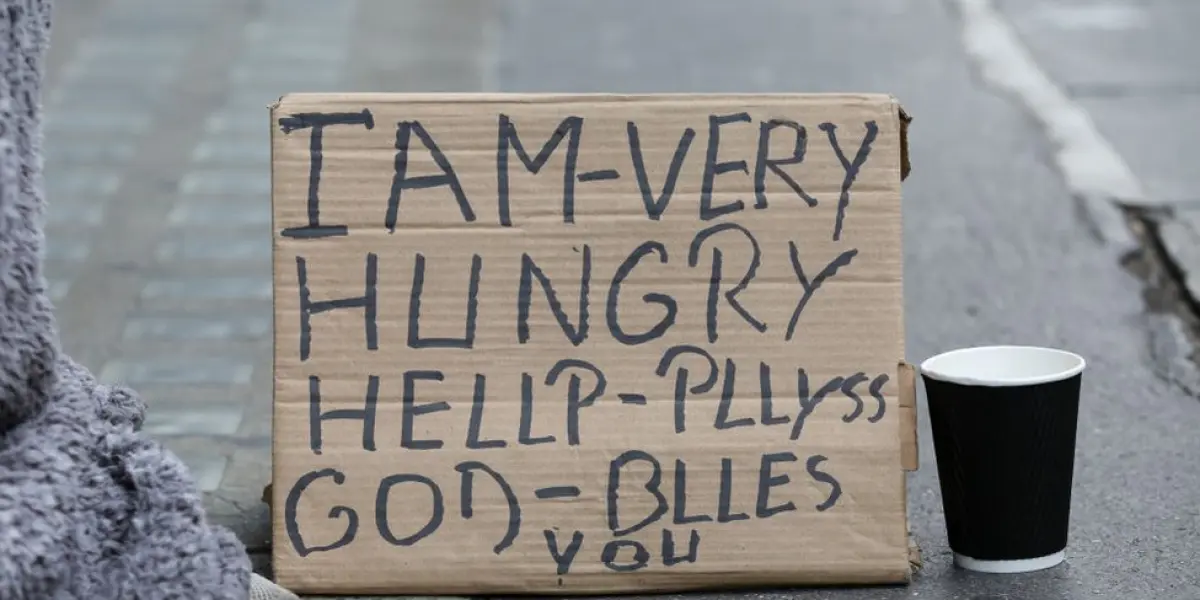 I AM-VERY
HUNGRY
HELLP-PLLYSS
GOD-BLLES
YOU